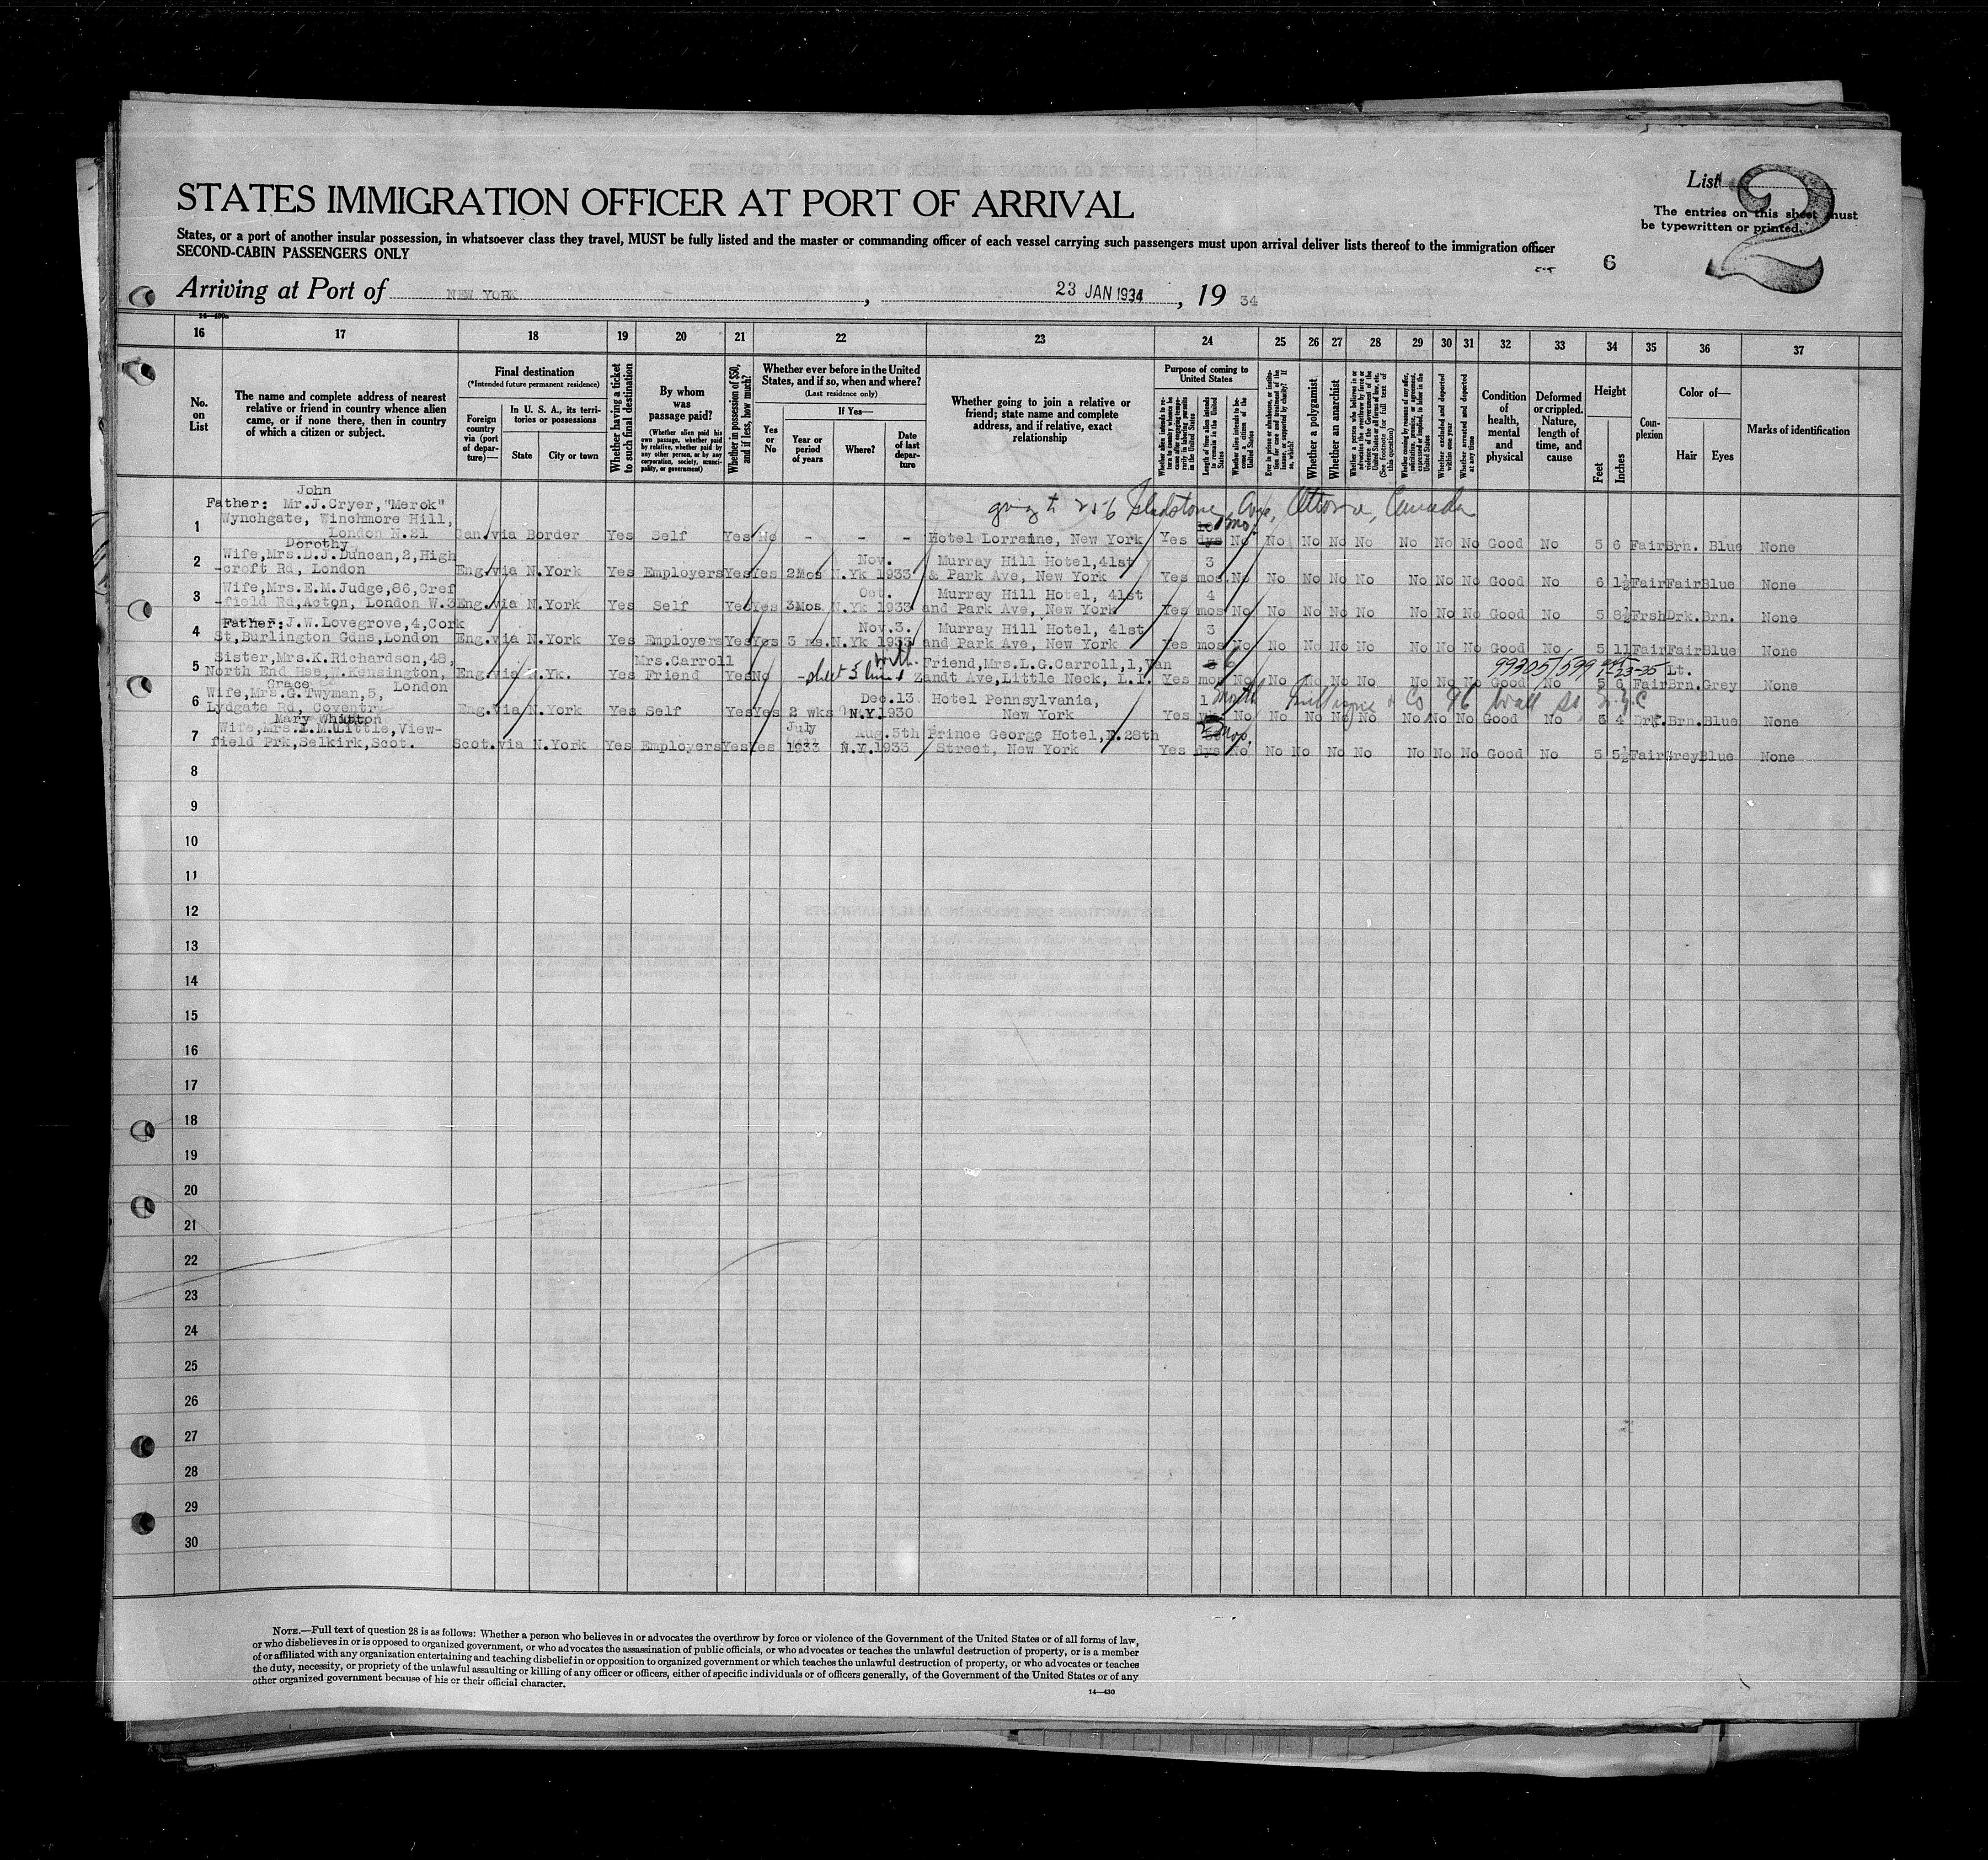 STATES IMMIGRATION OFFICER AT PORT OF ARRIVAL
List
2
The entries on this sheet must
be typewritten or printed.
States, or a port of another insular possession, in whatsoever class they travel, MUST be fully listed and the master or commanding officer of each vessel carrying such passengers must upon arrival deliver lists thereof to the immigration officer
SECOND-CABIN PASSENGERS ONLY
6
Arriving at Port of NEW YORK, 23 JAN 1934, 19 34
16 17 18 19 20 21 22 23 24 25 26 27 28 29 30 31 32 33 34 35 36 37
No. on List
The name and complete address of nearest relative or friend in country whence alien came, or if none there, then in country of which a citizen or subject.
Final destination
(*Intended future permanent residence)
Foreign country via (port of departure)—
In U. S. A., its territories or possessions
State
City or town
Whether having a ticket to such final destination
By whom was passage paid?
(Whether alien paid his own passage, whether paid by relative, whether paid by any other person, or by any corporation, society, municipality, or government)
Whether in possession of $50, and if less, how much?
Whether ever before in the United States, and if so, when and where?
(Last residence only)
Yes or No
If Yes—
Year or period of years
Where?
Date of last departure
Whether going to join a relative or friend; state name and complete address, and if relative, exact relationship
Purpose of coming to United States
Length of time alien intends to remain in the United States
Whether alien intends to become a citizen of the United States
Whether a polygamist
Whether an anarchist
Whether excluded and deported within one year
Whether arrested and deported at any time
Condition of health, mental and physical
Deformed or crippled. Nature, length of time, and cause
Height
Feet
Inches
Complexion
Color of—
Hair
Eyes
Marks of identification
John
going to 256 Gladstone Ave, Ottowa, Canada
1 Father: Mr.J.Cryer,"Merok"
Wynchgate, Winchmore Hill,
London N.21 Can.via Border Yes Self Yes No - - - Hotel Lorraine, New York Yes dys No No No No No No No No Good No 5 6 Fair Brn. Blue None
Dorothy
2 Wife,Mrs.D.J.Duncan,2,High Nov. Murray Hill Hotel,41st 3
-croft Rd, London Eng.via N.York Yes Employers Yes Yes 2Mos N.Yk 1933 & Park Ave, New York Yes mos. No No No No No No No No Good No 6 1½ Fair Fair Blue None
3 Wife,Mrs.E.M.Judge,86,Cref Oct. Murray Hill Hotel, 41st 4
-field Rd,Acton, London W.3 Eng.via N.York Yes Self Yes Yes 3Mos N.Yk 1933 and Park Ave, New York Yes mos No No No No No No No No Good No 5 8½ Frsh Drk. Brn. None
4 Father:J.W.Lovegrove,4,Cork Nov.3. Murray Hill Hotel, 41st 3
St,Burlington Gdns,London Eng.via N.York Yes Employers Yes Yes 3 ms. N.Yk 1933 and Park Ave, New York Yes mos No No No No No No No No Good No 5 11 Fair Fair Blue None
5 Sister,Mrs.K.Richardson,48, Mrs.Carroll with Friend,Mrs.L.G.Carroll,1,Van 6 99305/599 Lt.
North End Hse,W.Kensington, Eng.via N.Yk. Yes Friend Yes No - sheet 5 line 1 Zandt Ave,Little Neck, L.I. Yes mos No No No No No No No No Good No 5 6 Fair Brn. Grey None
London
Grace
6 Wife,Mrs.G.Twyman,5, Dec.13 Hotel Pennsylvania, 1 month & Co 76 Wall St, N.Y.C
Lydgate Rd, Coventry Eng.via N.York Yes Self Yes Yes 2 wks N.Y. 1930 New York Yes No No No No No No No No Good No 5 4 Drk. Brn. Blue None
Mary Whitton
7 Wife,Mrs.I.M.Little,View- July Aug.5th Prince George Hotel,E.28th mos.
field Prk,Selkirk,Scot. Scot.via N.York Yes Employers Yes Yes 1933 N.Y. 1933 Street, New York Yes dys No No No No No No No No Good No 5 5½ Fair Grey Blue None
8
9
10
11
12
13
14
15
16
17
18
19
20
21
22
23
24
25
26
27
28
29
30
NOTE.—Full text of question 28 is as follows: Whether a person who believes in or advocates the overthrow by force or violence of the Government of the United States or of all forms of law,
or who disbelieves in or is opposed to organized government, or who advocates the assassination of public officials, or who advocates or teaches the unlawful destruction of property, or is a member
of or affiliated with any organization entertaining and teaching disbelief in or opposition to organized government or which teaches the unlawful destruction of property, or who advocates or teaches
the duty, necessity, or propriety of the unlawful assaulting or killing of any officer or officers, either of specific individuals or of officers generally, of the Government of the United States or of any
other organized government because of his or their official character.
14—430